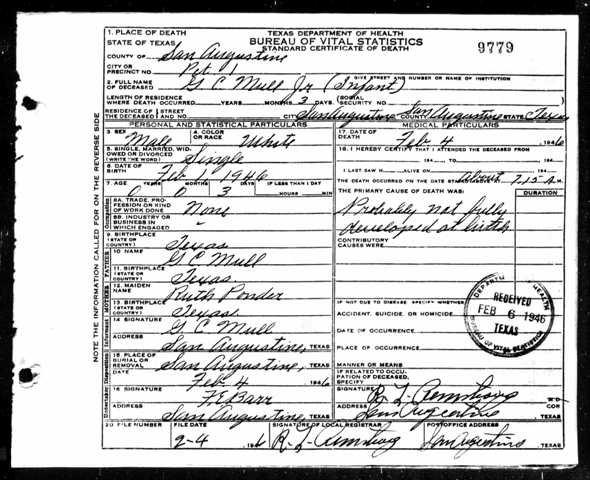 1. PLACE OF DEATH
STATE OF TEXAS
TEXAS DEPARTMENT OF HEALTH
BUREAU OF VITAL STATISTICS
STANDARD CERTIFICATE OF DEATH
9779
COUNTY OF San Augustine
CITY OR PRECINCT NO. Pct. 1
GIVE STREET AND NUMBER OR NAME OF INSTITUTION
2. FULL NAME OF DECEASED G C Mull Jr (Infant)
LENGTH OF RESIDENCE WHERE DEATH OCCURRED YEARS MONTHS 3 DAYS (SOCIAL SECURITY NO.
RESIDENCE OF THE DECEASED STREET NO. CITY San Augustine COUNTY San Augustine STATE Texas
PERSONAL AND STATISTICAL PARTICULARS
MEDICAL PARTICULARS
3. SEX Man 4. COLOR OR RACE White
17. DATE OF DEATH Feb 4 1946
5. SINGLE, MARRIED, WIDOWED OR DIVORCED (WRITE THE WORD) Single
18. I HEREBY CERTIFY THAT I ATTENDED THE DECEASED FROM
194 TO 194
6. DATE OF BIRTH Feb 1, 1946
I LAST SAW H ALIVE ON 194
THE DEATH OCCURRED ON THE DATE STATED ABOVE AT About 7:15 A M.
7. AGE YEARS MONTHS DAYS IF LESS THAN 1 DAY
0 0 3 HOURS MIN.
THE PRIMARY CAUSE OF DEATH WAS: DURATION
8A. TRADE, PROFESSION OR KIND OF WORK DONE None
Probably not fully developed at birth
8B. INDUSTRY OR BUSINESS IN WHICH ENGAGED -
CONTRIBUTORY CAUSES WERE:
9. BIRTHPLACE (STATE OR COUNTRY) Texas
10. NAME G C Mull
11. BIRTHPLACE (STATE OR COUNTRY) Texas
12. MAIDEN NAME Ruth Ponder
13. BIRTHPLACE (STATE OR COUNTRY) Texas
IF NOT DUE TO DISEASE SPECIFY WHETHER:
ACCIDENT, SUICIDE, OR HOMICIDE
14. SIGNATURE G C Mull
DATE OF OCCURRENCE
ADDRESS San Augustine, TEXAS
PLACE OF OCCURRENCE
15. PLACE OF BURIAL OR REMOVAL San Augustine, TEXAS
MANNER OR MEANS
Feb 4 1946
IF RELATED TO OCCUPATION OF DECEASED, SPECIFY
16. SIGNATURE
SIGNATURE R. L. Armstrong M.D. COR
ADDRESS San Augustine, TEXAS
ADDRESS San Augustine TEXAS
20. FILE NUMBER FILE DATE SIGNATURE OF LOCAL REGISTRAR POST OFFICE ADDRESS
2-4 194 R. L. Armstrong San Augustine TEXAS
RECEIVED
FEB 6 1946
TEXAS
BUREAU OF VITAL STATISTICS
NOTE THE INFORMATION CALLED FOR ON THE REVERSE SIDE
Occupation
FATHER
MOTHER
Informant